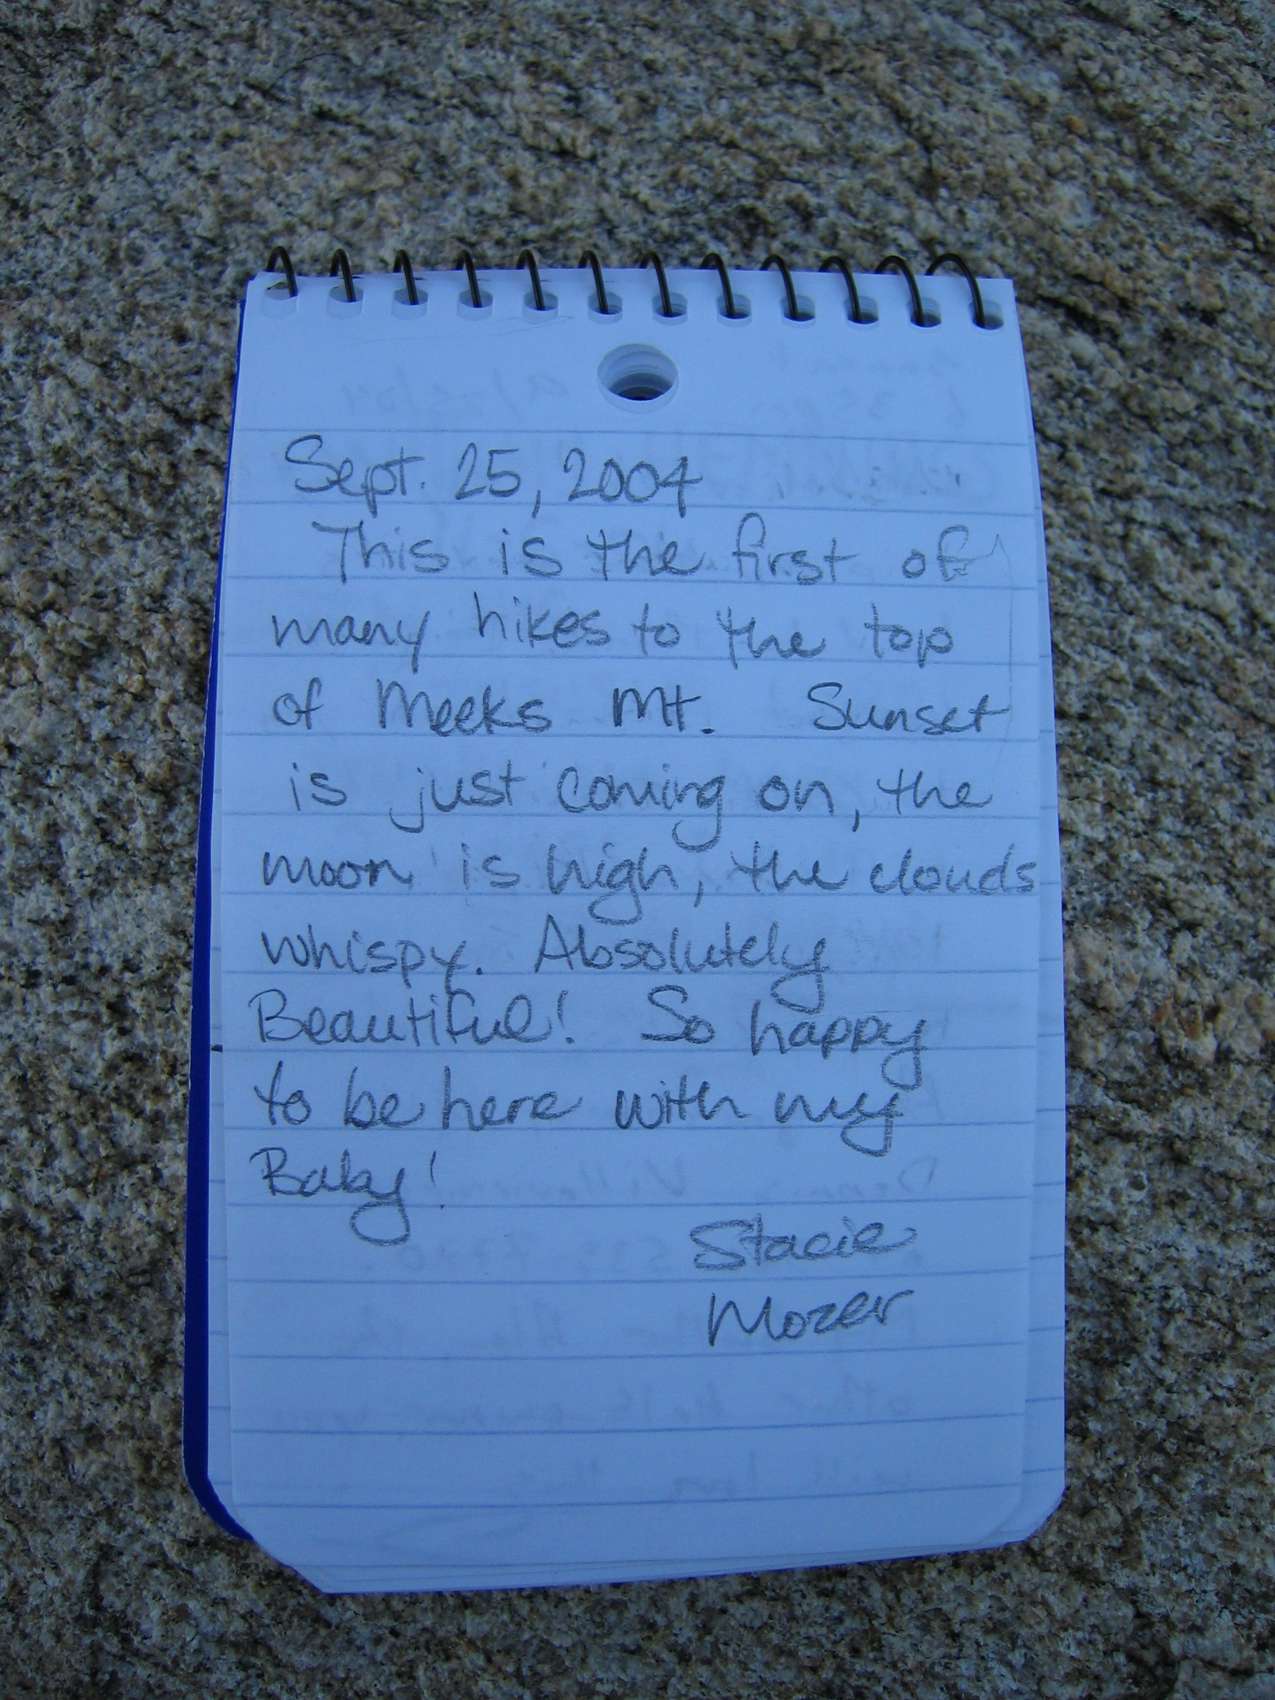 Sept. 25, 2004
This is the first of
many hikes to the top
of Meeks Mt. Sunset
is just coming on, the
moon is high, the clouds
whispy. Absolutely
Beautiful! So happy
to be here with my
Baby!
Stacie
Mozer